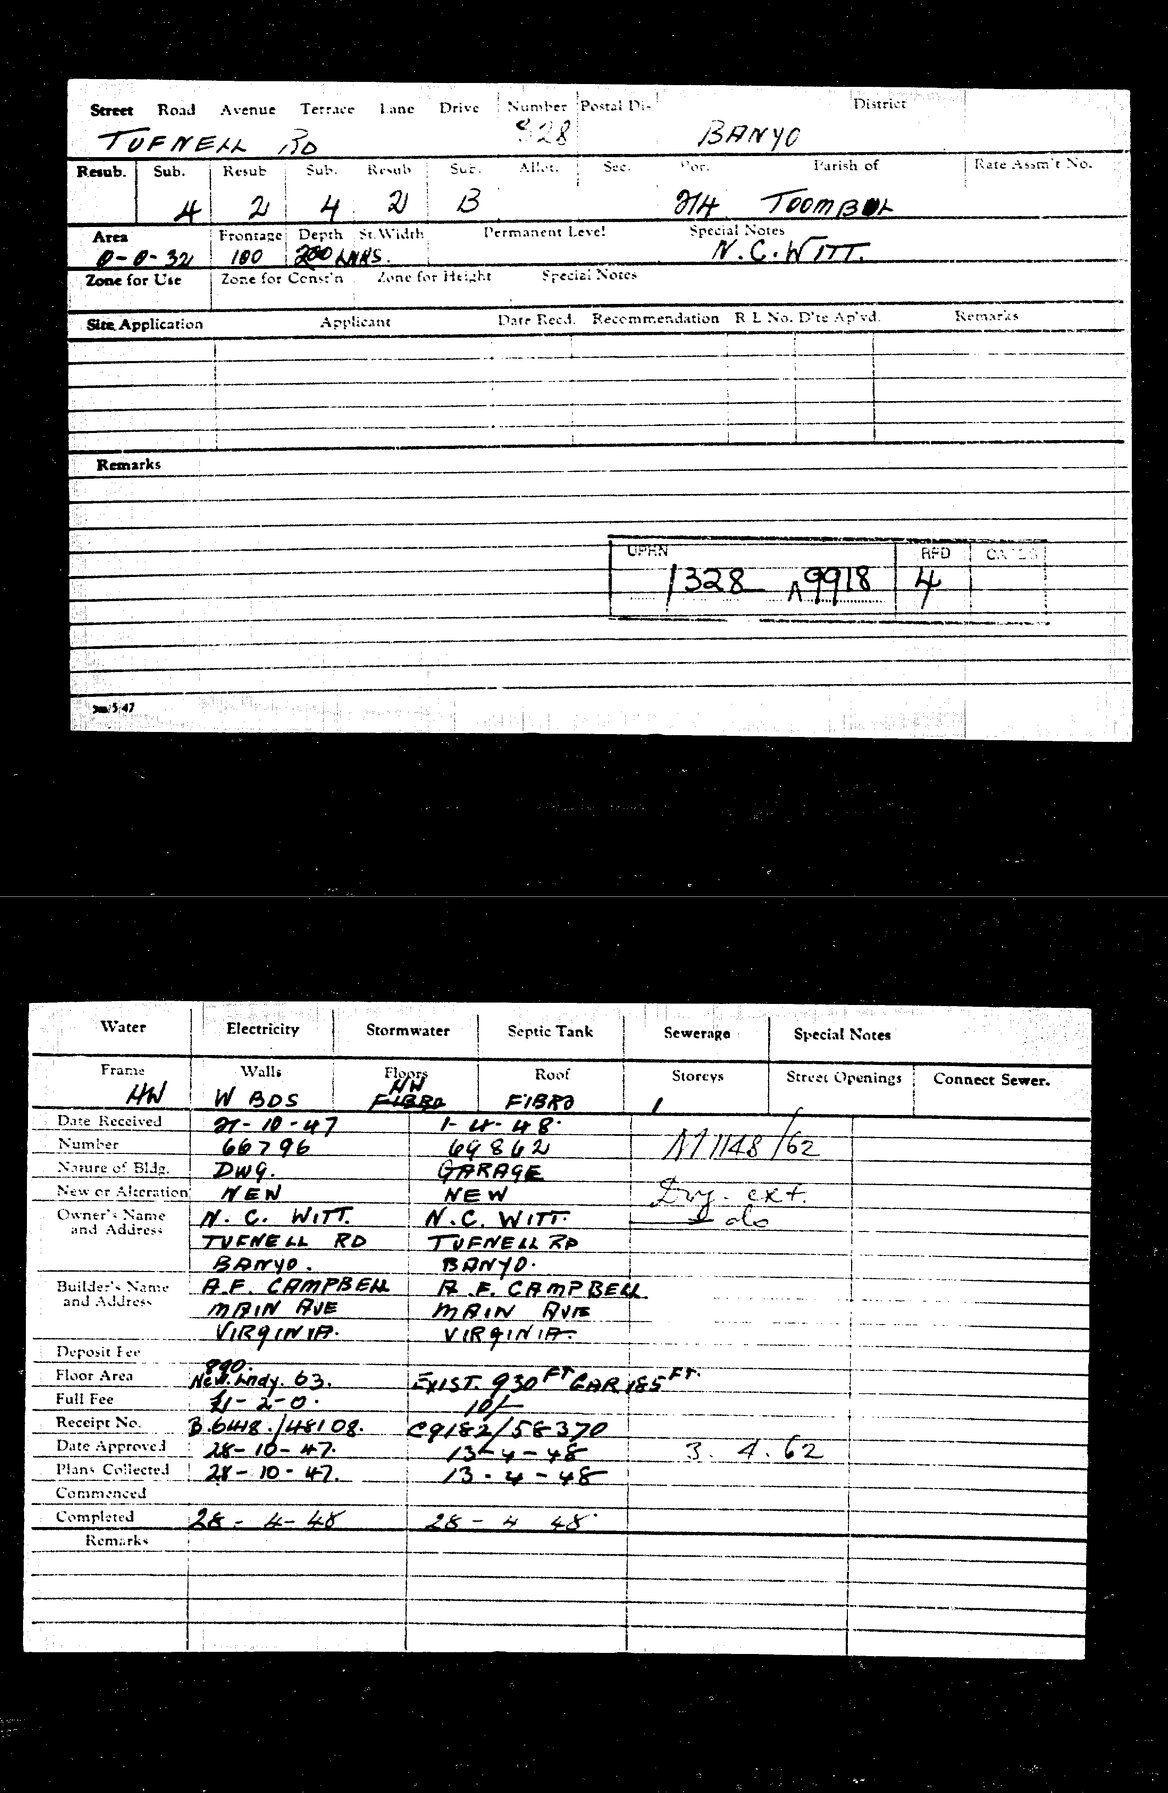 Street Road Avenue Terrace Lane Drive Number Postal Di- District
TUFNELL RD 328 BANYO
Resub. Sub. Resub Sub. Resub Sub. Allot. Sec. Por. Parish of Rate Assm't No.
4 2 4 2 B 214 TOOMBUL
Area Frontage Depth St.Width Permanent Level Special Notes
0-0-32 100 200 LNKS. N.C.WITT.
Zone for Use Zone for Const'n Zone for Height Special Notes
Site Application Applicant Date Recd. Recommendation R L No. D'te Ap'vd. Remarks
Remarks
UPRN RPD
1328 9918 4
5/47
Water Electricity Stormwater Septic Tank Sewerage Special Notes
Frame Walls Floors Roof Storeys Street Openings Connect Sewer.
HW
HW W BDS FIBRO FIBRO 1
Date Received 27-10-47 1-4-48.
Number 66796 69862 1148/62
Nature of Bldg. DWG. GARAGE
New or Alteration NEW NEW ext.
Owner's Name N. C. WITT. N.C. WITT. do
and Address TUFNELL RD TUFNELL RD
BANYO. BANYO.
Builder's Name A.F. CAMPBELL A.F. CAMPBELL
and Address MAIN AVE MAIN AVE
VIRGINIA. VIRGINIA.
Deposit Fee
890.
Floor Area New. Lndy. 63. EXIST. 930 FT GAR 185 FT.
Full Fee £1-2-0. 10/-
Receipt No. B.6448./48108. C9182/58370
Date Approved 28-10-47. 13-4-48 3.4.62
Plans Collected 28-10-47. 13-4-48
Commenced
Completed 28-4-48 28-4 48.
Remarks